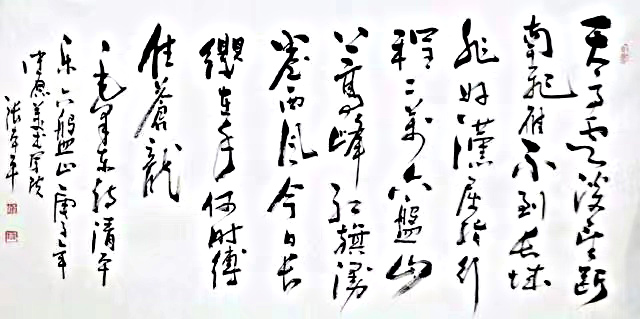 天高云淡望断
南飛雁不到长城
非好漢屈指行
程二萬六盤山
上高峰红旗漫
卷西风今日长
缨在手何时缚
住蒼龍
毛泽东词清平
乐六盤山庚子年
美术学院